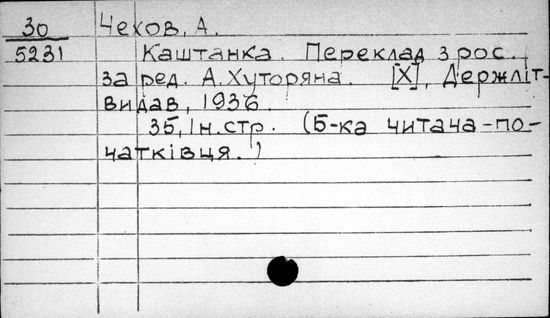 30 Чехов, А.
5231 Каштанка. Переклад з рос.
за ред. А. Хуторяна. [Х], Держліт-
видав, 1936.
35, Ін. стр. (Б-ка читача-по-
чатківця.)